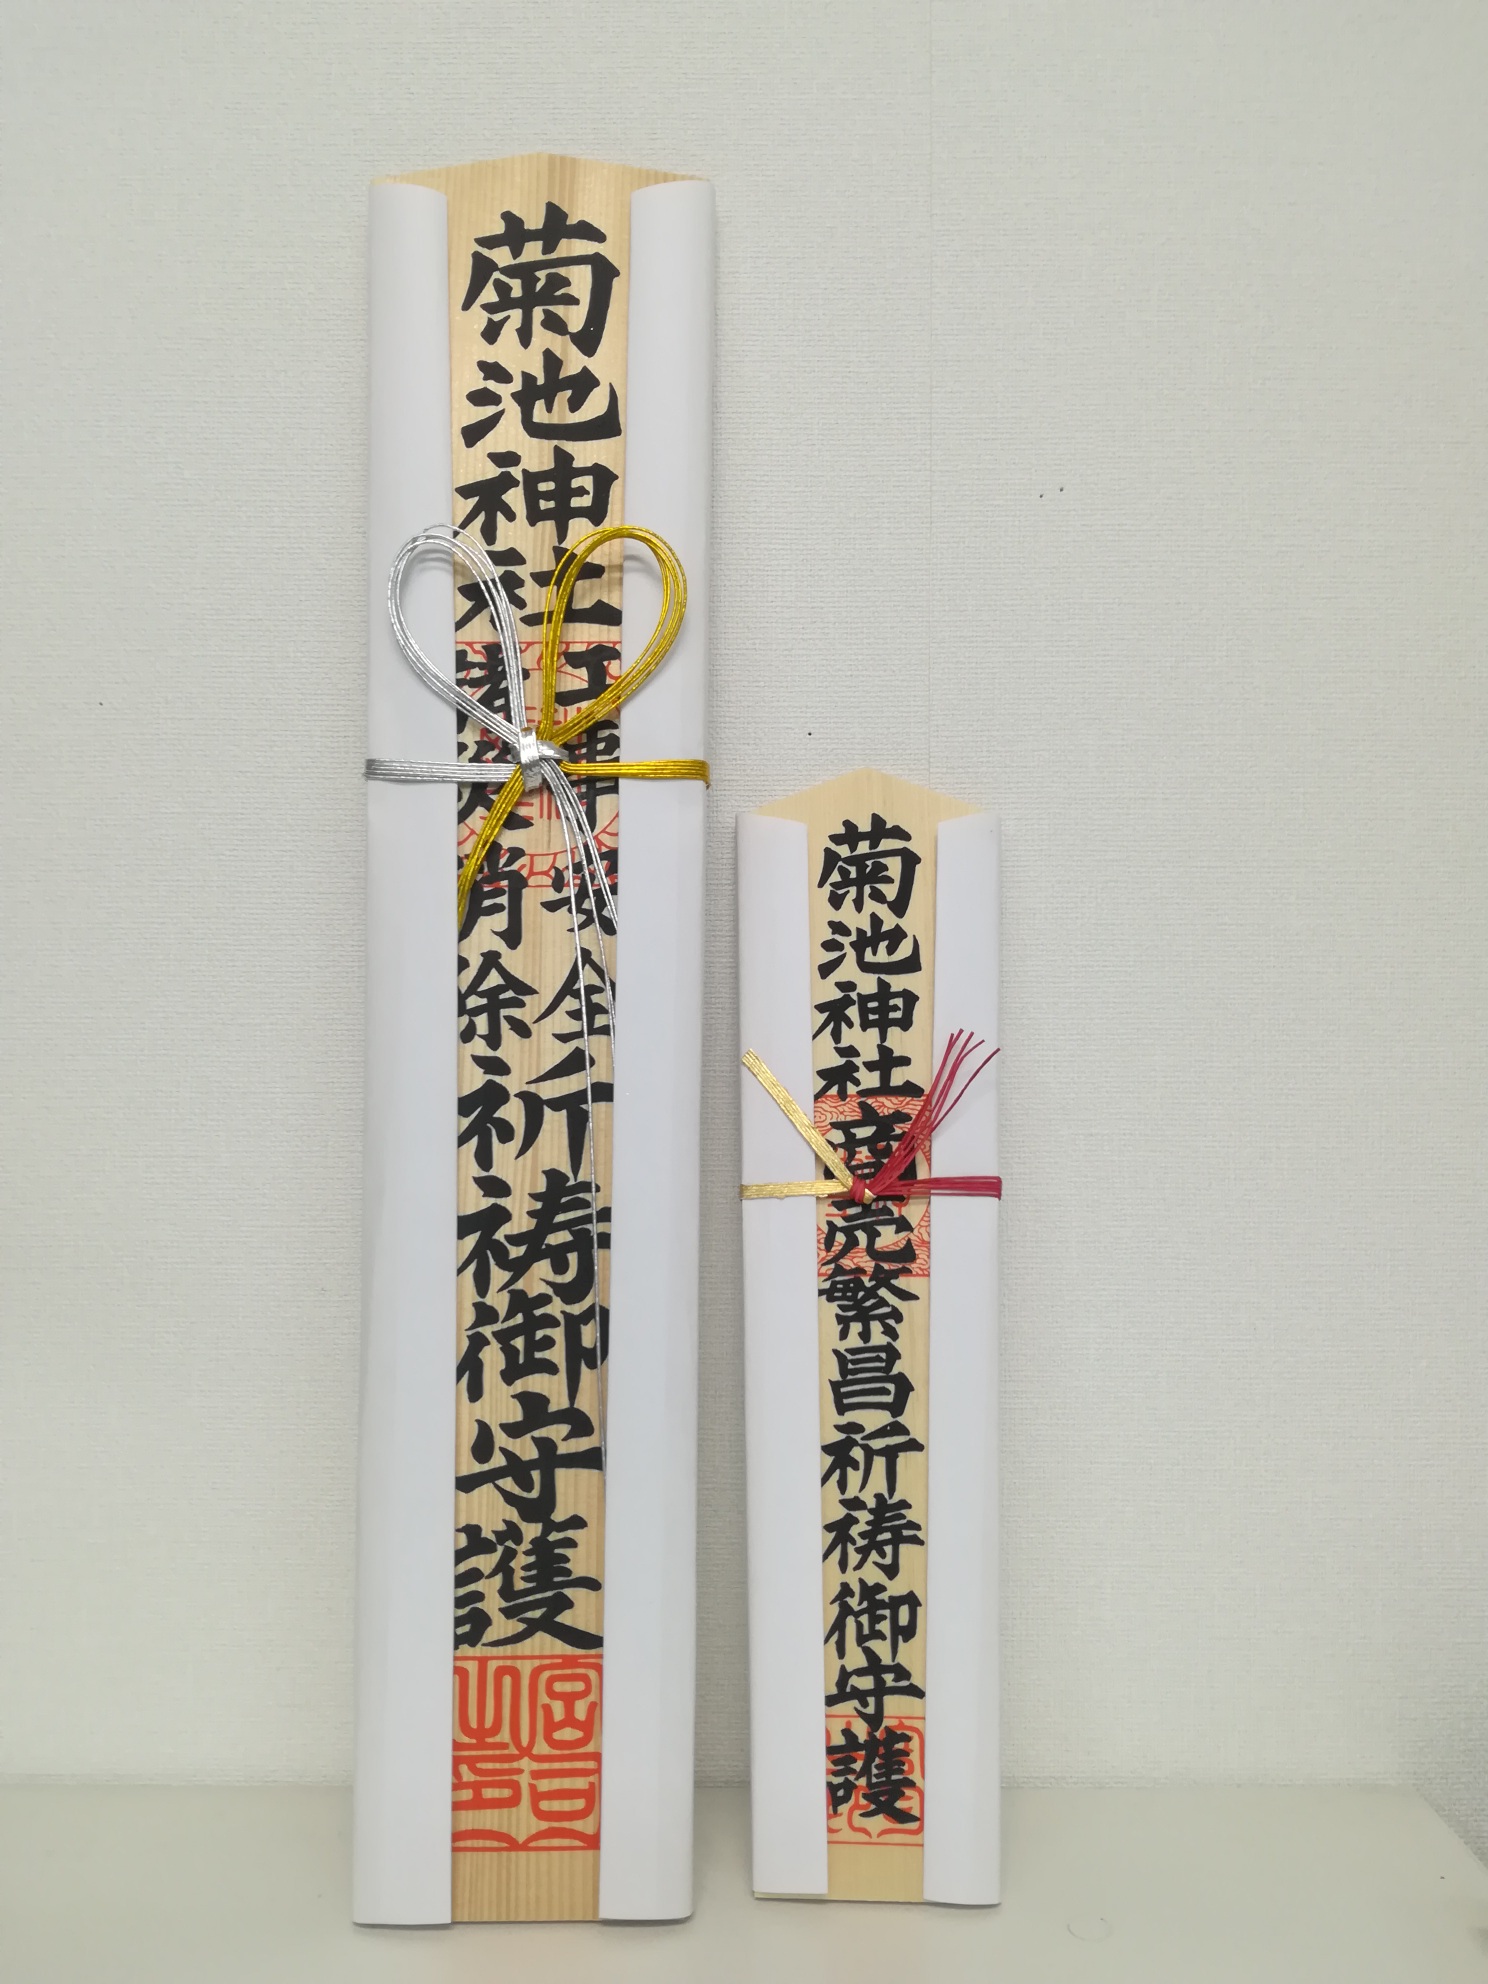 菊池神社
工事安全
諸災消除
祈祷御守護
宮司之印
菊池神社商売繁昌祈祷御守護